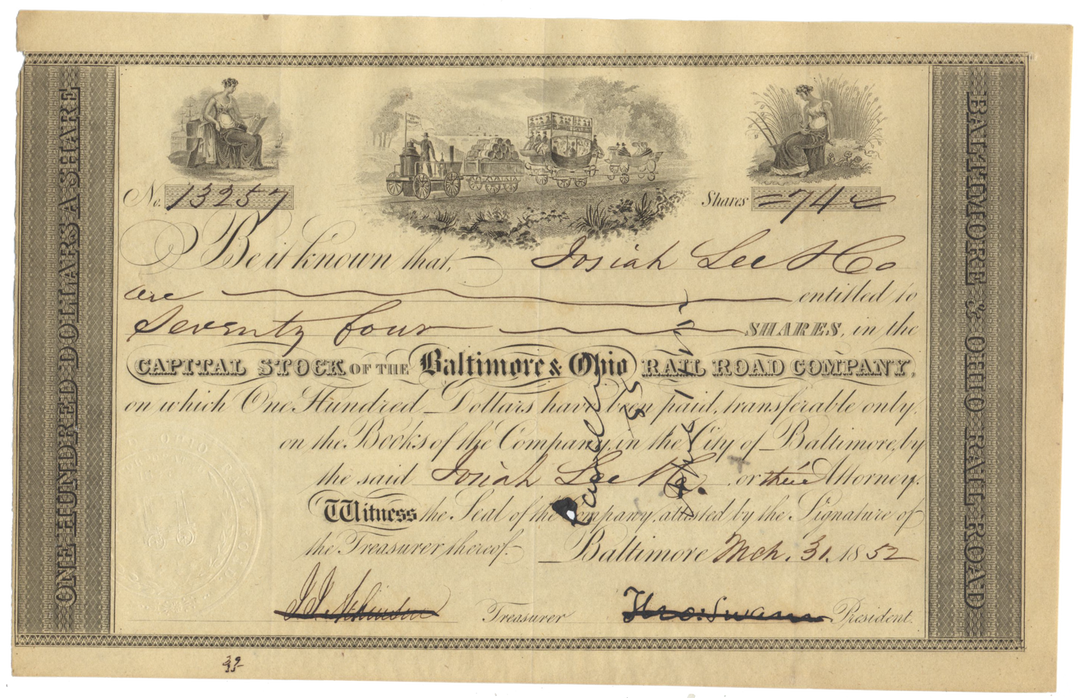 ONE HUNDRED DOLLARS A SHARE
BALTIMORE & OHIO RAIL ROAD
No. 13257
Shares =74=
Be it known that, Josiah Lee & Co
are entitled to
Seventy four SHARES, in the
CAPITAL STOCK OF THE Baltimore & Ohio RAIL ROAD COMPANY,
on which One Hundred Dollars have been paid, transferable only
on the Books of the Company, in the City of Baltimore, by
the said Josiah Lee & Co or their Attorney.
Witness the Seal of the Company, attested by the Signature of
the Treasurer thereof. Baltimore Mch. 31. 1852
Treasurer
Tho. Swann President.
Cancelled